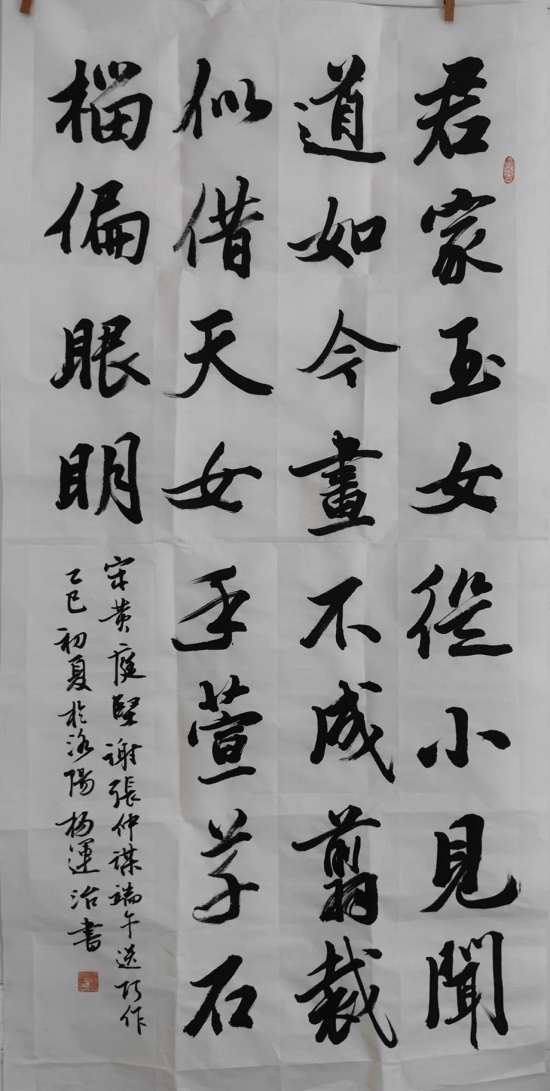 君家玉女從小見聞
道如今畫不成翦裁
似借天女手萱草石
榴偏眼明
宋黄庭堅謝張仲謀端午送巧作
乙巳初夏於洛陽楊運治書